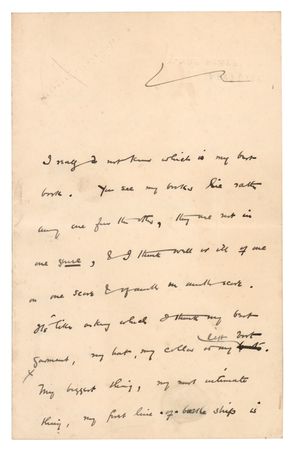 I really do not know which is my best
book. You see my books lie rather
away one from the other, they are not in
one genre, & I think well or ill of one
on one score & of another on another score.
It's like asking which I think my best
garment, my hat, my collar or my
left boot
My biggest thing, my most intimate
thing, my first line of battle ship is